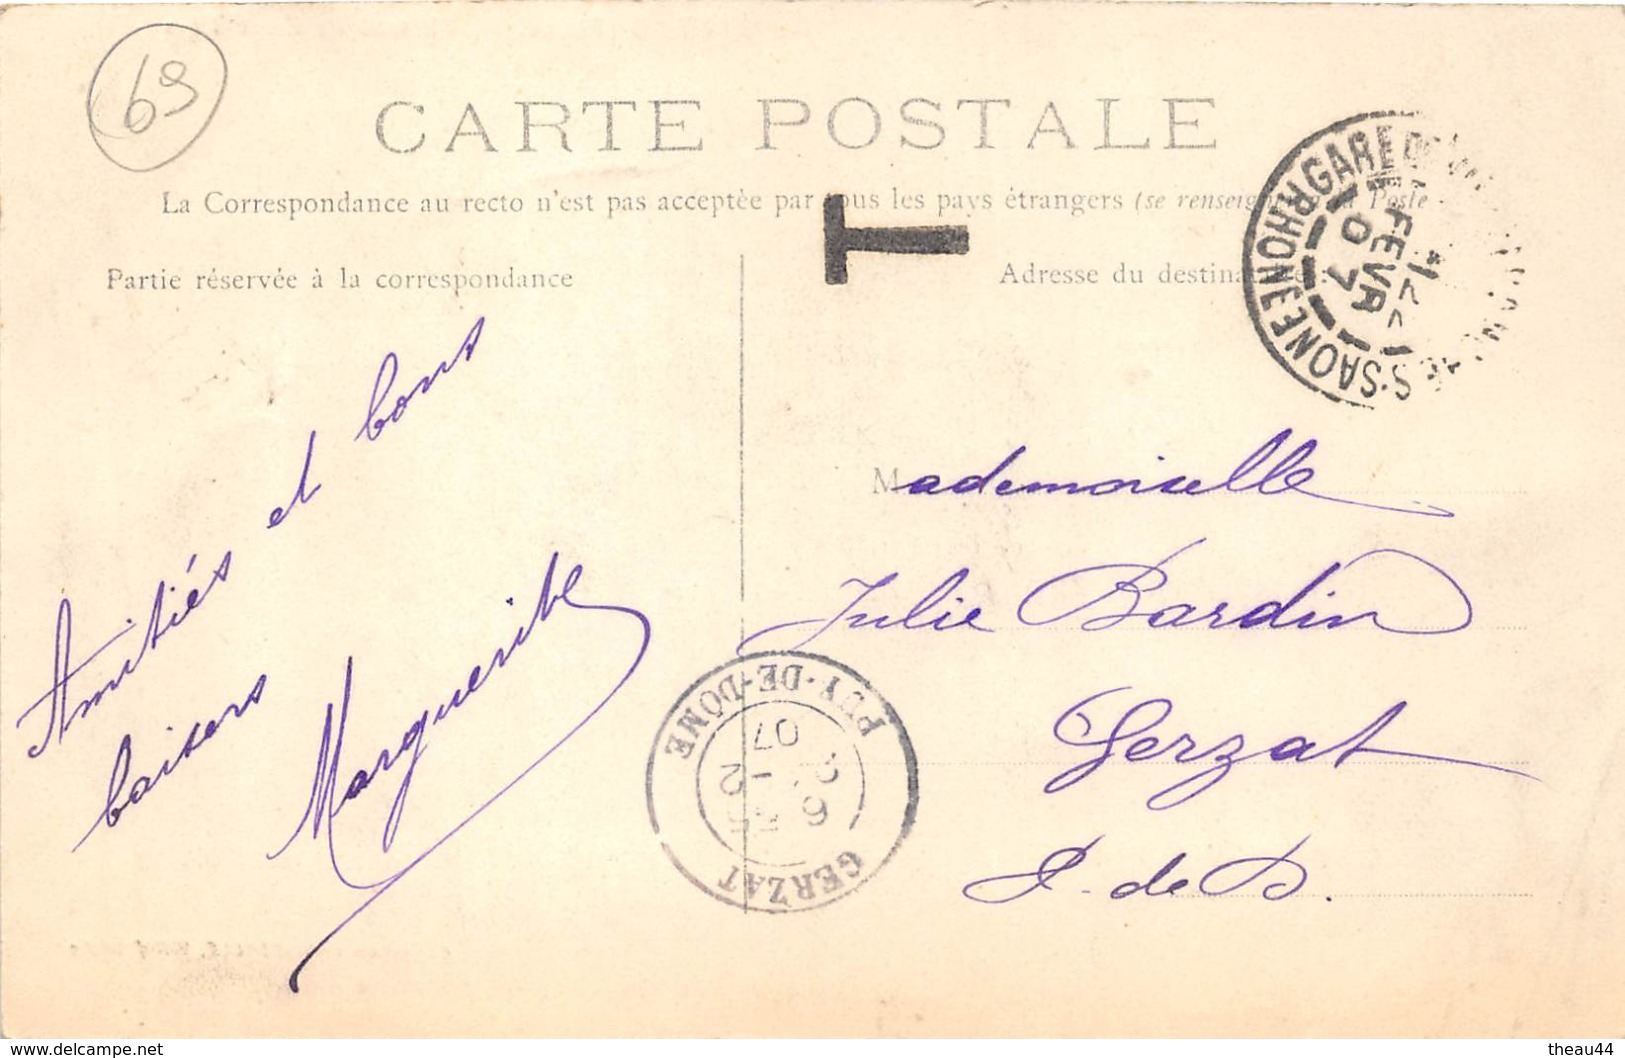 69
CARTE POSTALE
La Correspondance au recto n'est pas acceptée par tous les pays étrangers (se renseigner à la Poste
T
Partie réservée à la correspondance
Adresse du destinataire :
GARE
FEVR
07
S-SAONE RHONE
Amitiés et bons
baisers
Marguerite
Mademoiselle
Julie Bardin
Gerzat
P-de D.
GERZAT
07
PUY-DE-DÔME
www.delcampe.net
theau44